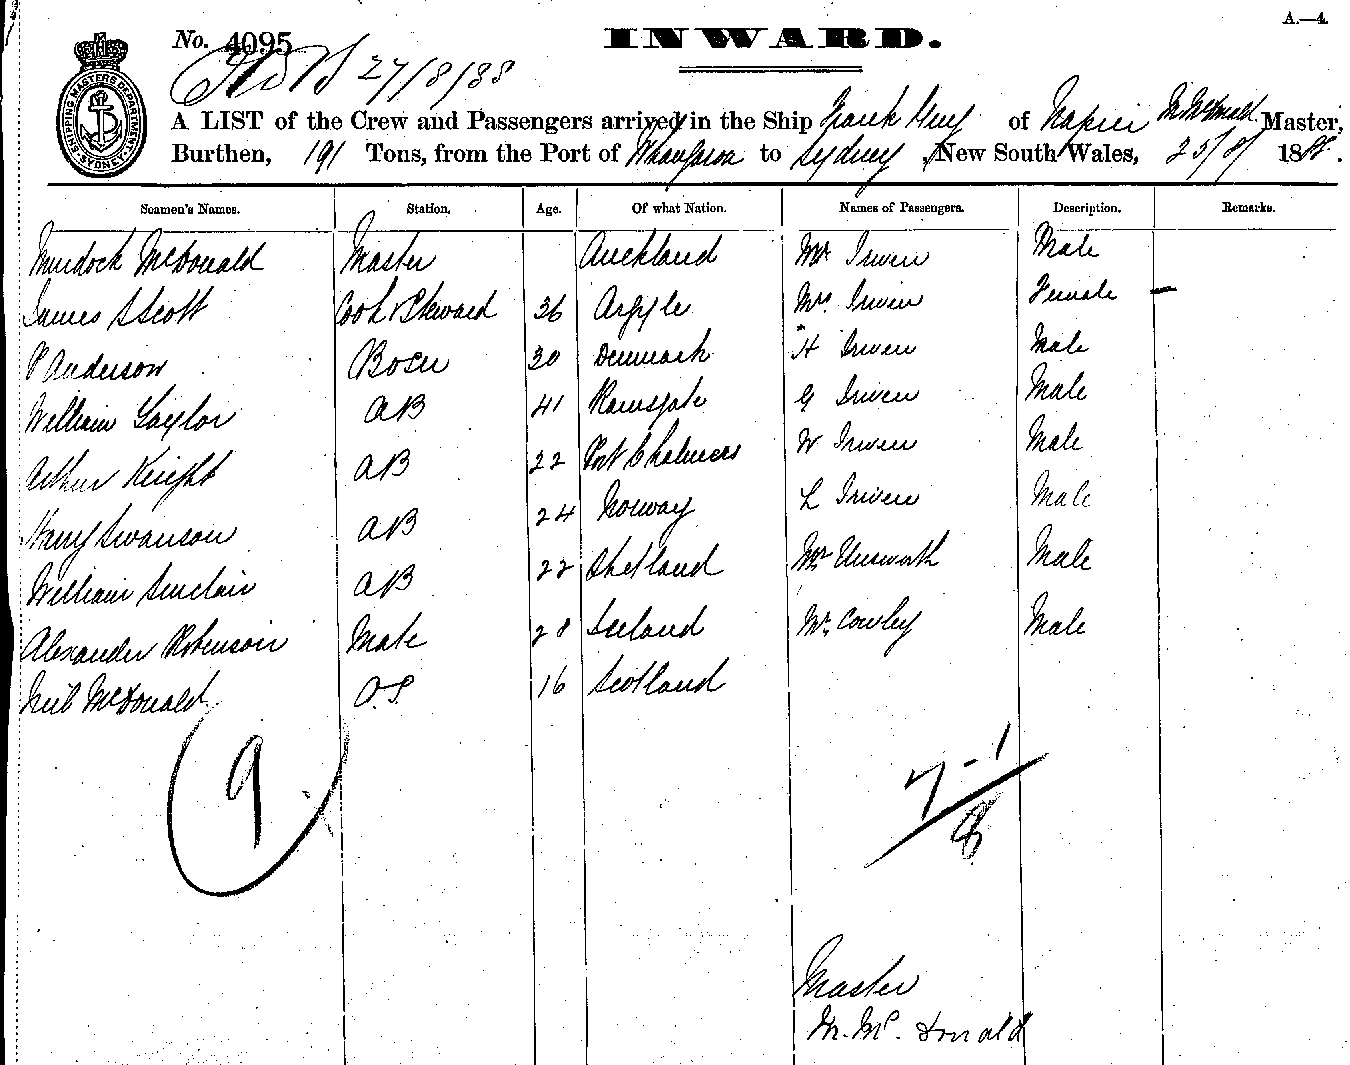 A.—4.
No. 4095
INWARD.
27/8/88
SHIPPING MASTERS DEPARTMENT SYDNEY
A LIST of the Crew and Passengers arrived in the Ship Frank Guy of Napier M. McDonald Master,
Burthen, 191 Tons, from the Port of to Sydney, New South Wales, 25/8/ 1888.
Seamen's Names. Station. Age. Of what Nation. Names of Passengers. Description. Remarks.
Murdoch McDonald Master Auckland Mr Irwen Male
James Scott Cook & Steward 36 Argyle Mrs Irwen Female –
P Anderson Bosen 30 Denmark H Irwen Male
William Taylor AB 41 Ramsgate G Irwen Male
Arthur Knight AB 22 Port Chalmers W Irwen Male
Harry Swanson AB 24 Norway L Irwen Male
William Sinclair AB 22 Shetland Mr Unsworth Male
Alexander Robinson Mate 28 Mr Cowley Male
Neil McDonald O.S. 16 Scotland
9
7 - 1
8
Master
M. Mc. Donald